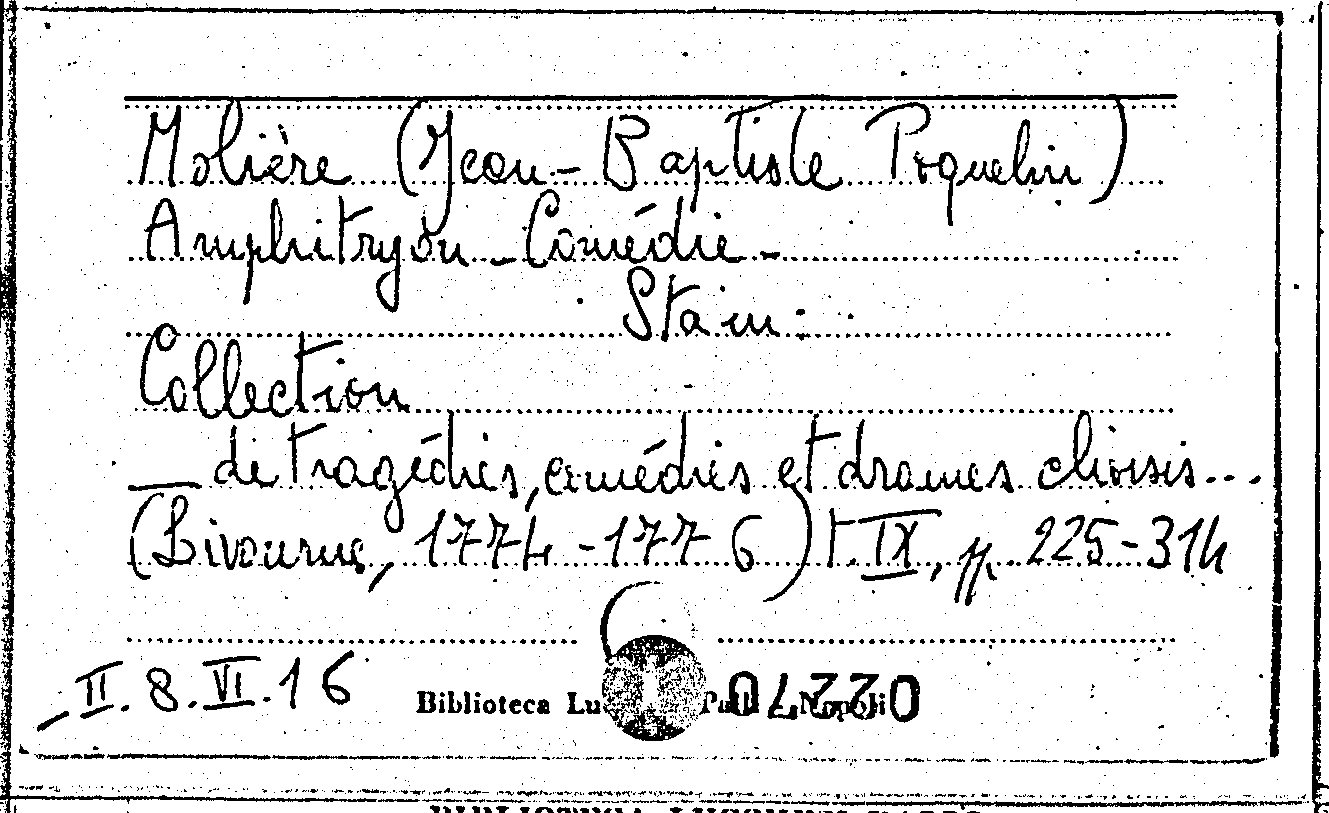 Molière (Jean-Baptiste Poquelin)
Amphitryon - Comédie -
Sta in:
Collection
— de tragédies, comédies et drames choisis...
(Livourne, 1774-1776) t. IX, pp. 225-314
II. 8. VI. 16
Biblioteca
02270